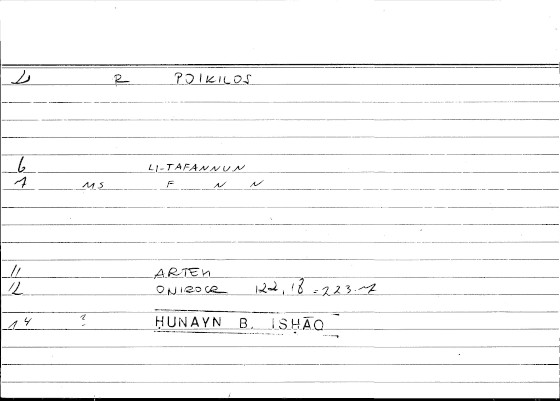 2 R POIKILOS
6 LI-TAFANNUN
7 MS F N N
11 ARTEM
12 ONIROCR 122,18 = 223.7
14 ? ḤUNAYN B. ISḤĀQ